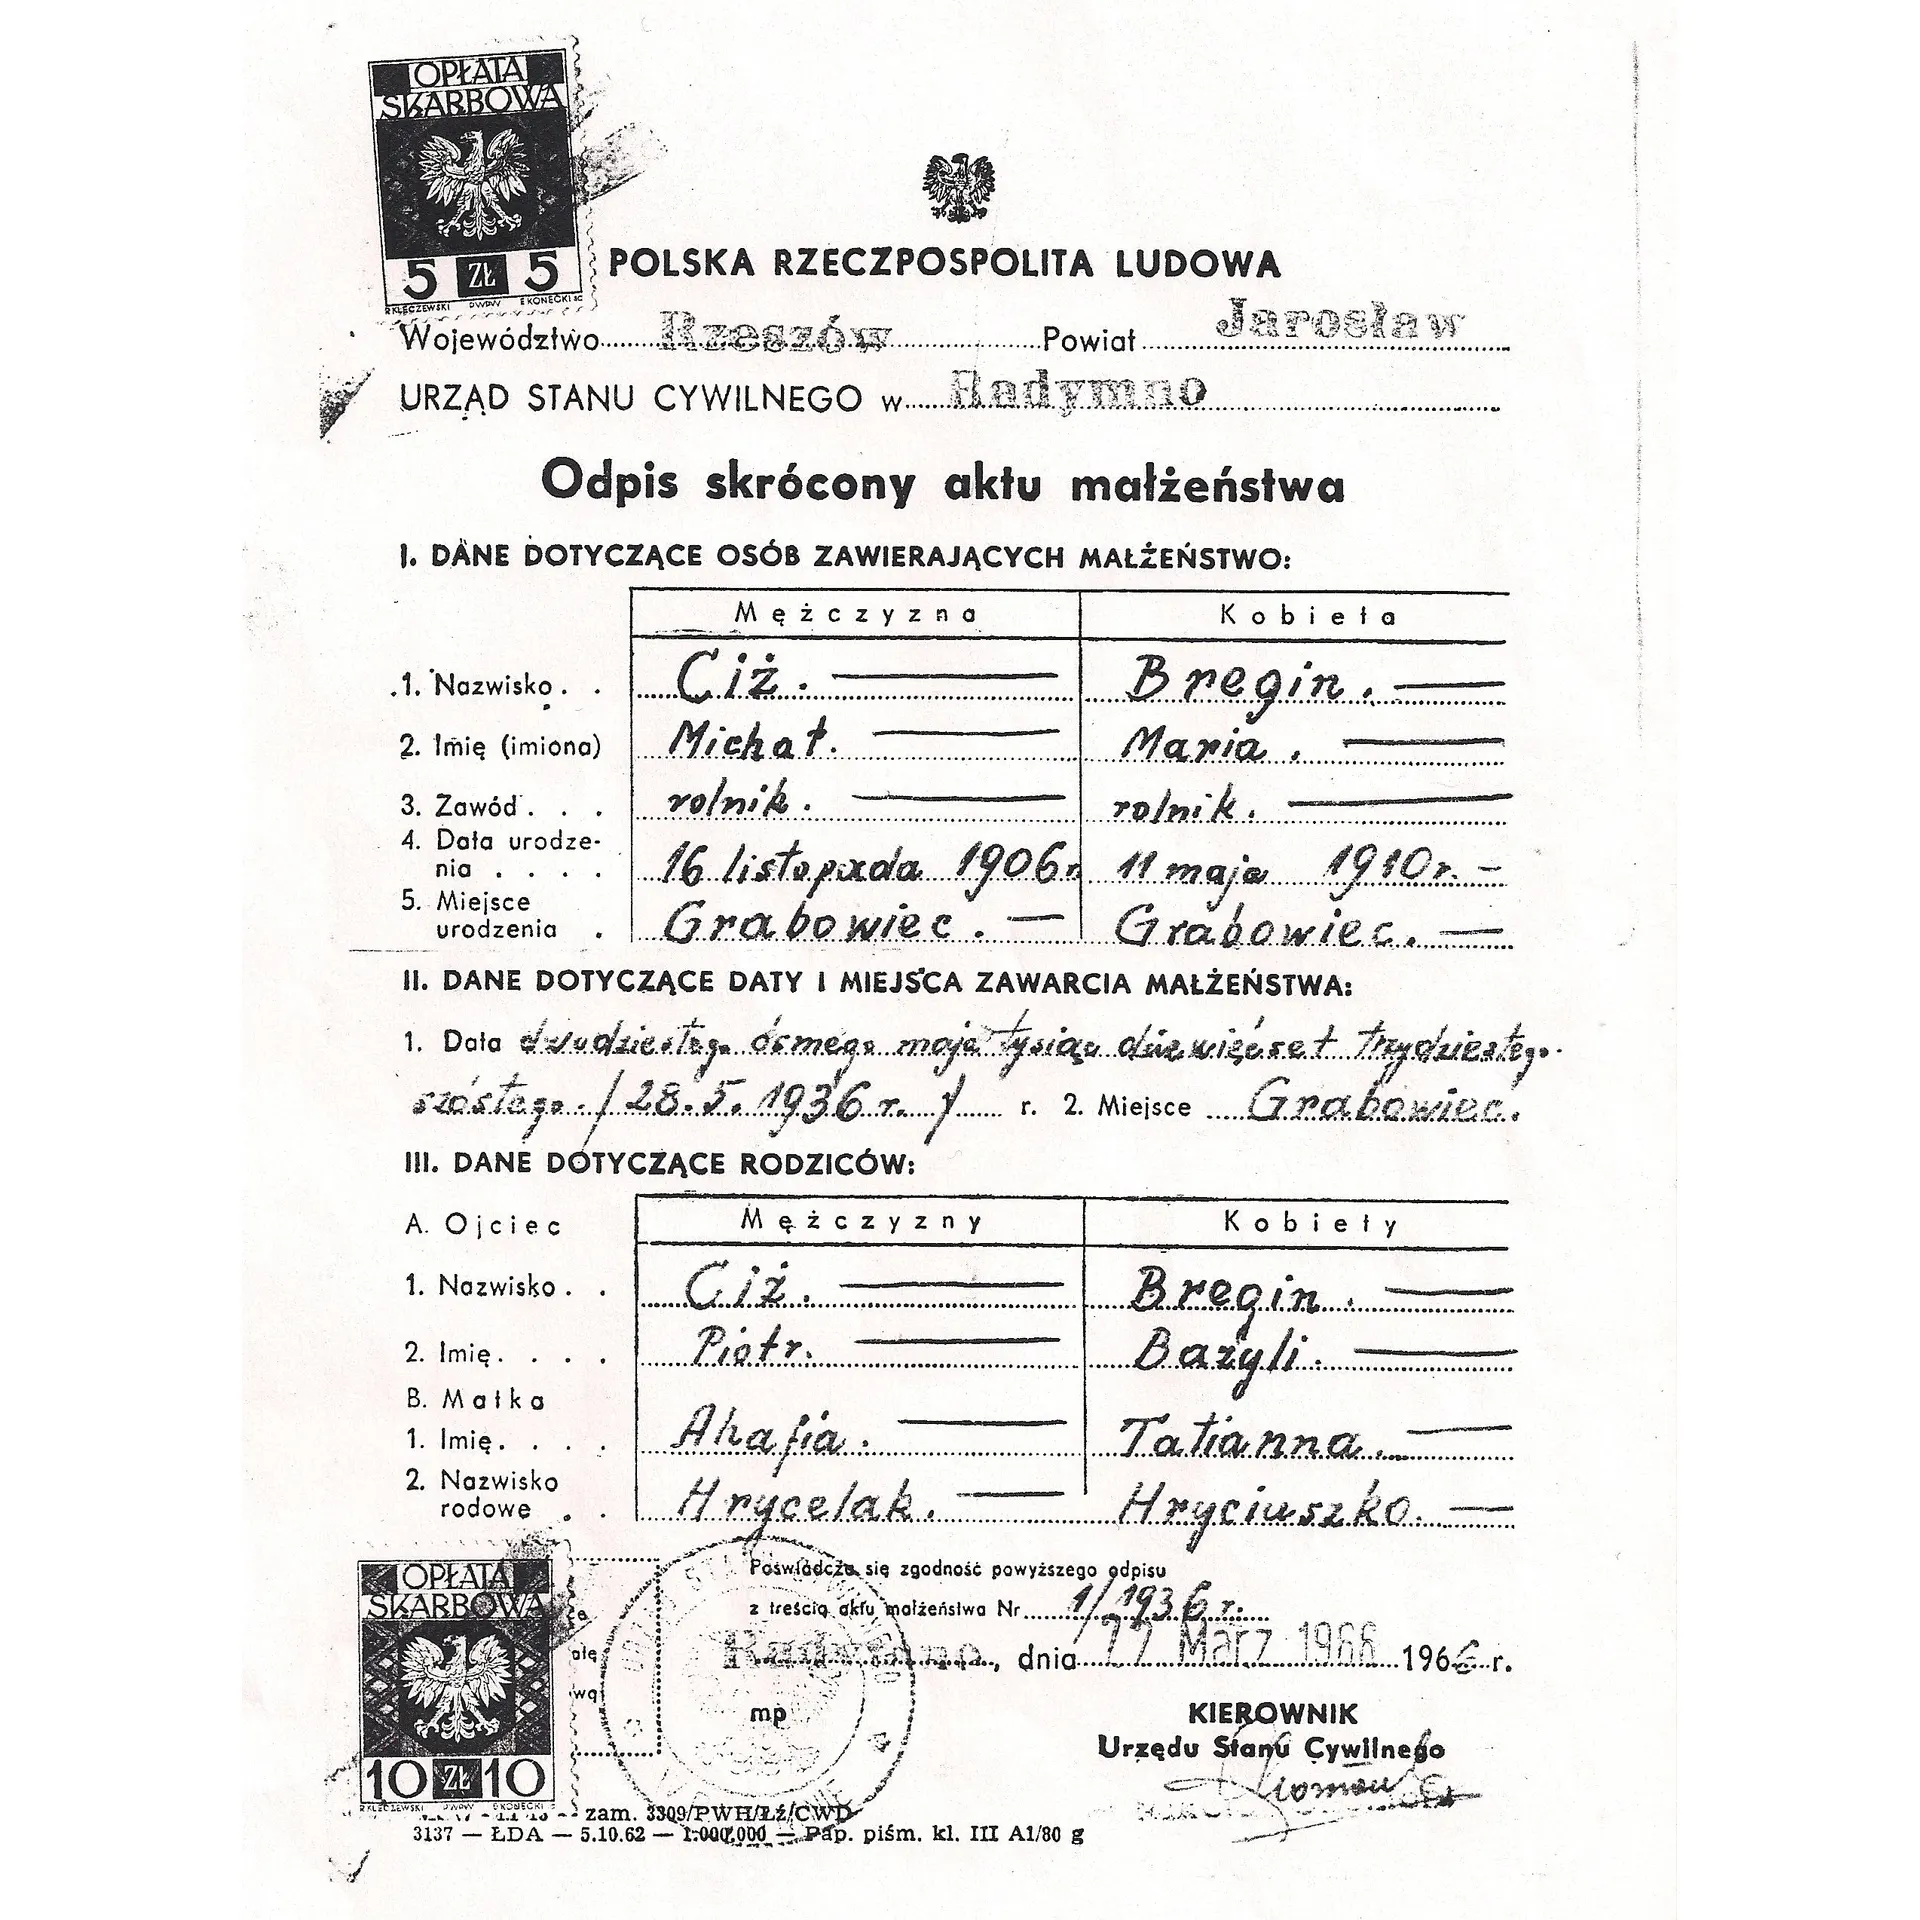 OPŁATA
SKARBOWA
5 ZŁ 5
R.KLECZEWSKI PWPW E.KONECKI SC
POLSKA RZECZPOSPOLITA LUDOWA
Województwo Rzeszów Powiat Jarosław
URZĄD STANU CYWILNEGO w Radymno
Odpis skrócony aktu małżeństwa
I. DANE DOTYCZĄCE OSÓB ZAWIERAJĄCYCH MAŁŻEŃSTWO:
Mężczyzna Kobieta
1. Nazwisko . . Ciż. Bregin.
2. Imię (imiona) Michał. Maria.
3. Zawód . . . rolnik. rolnik.
4. Data urodze-
nia . . . . 16 listopada 1906r 11 maja 1910r. –
5. Miejsce
urodzenia . Grabowiec. — Grabowiec. —
II. DANE DOTYCZĄCE DATY I MIEJSCA ZAWARCIA MAŁŻEŃSTWA:
1. Data dwudziestego ósmego maja tysiąc dziewięćset trzydziestego
szóstego. / 28.5.1936 r. / r. 2. Miejsce Grabowiec.
III. DANE DOTYCZĄCE RODZICÓW:
A. Ojciec Mężczyzny Kobiety
1. Nazwisko . . Ciż. Bregin.
2. Imię . . . . Piotr. Bazyli.
B. Matka
1. Imię . . . . Ahafia. Tatianna.
2. Nazwisko
rodowe . . Hrycelak. Hryciuszko.
Poświadcza się zgodność powyższego odpisu
z treścią aktu małżeństwa Nr 1/1936 r.
Radymno, dnia Marz 1966 1966 r.
mp
KIEROWNIK
Urzędu Stanu Cywilnego
OPŁATA
SKARBOWA
10 ZŁ 10
R.KLECZEWSKI PWPW E.KONECKI
zam. 3309/PWH/Łź/CWD
3137 — ŁDA — 5.10.62 — 1.000.000 — Pap. piśm. kl. III A1/80 g